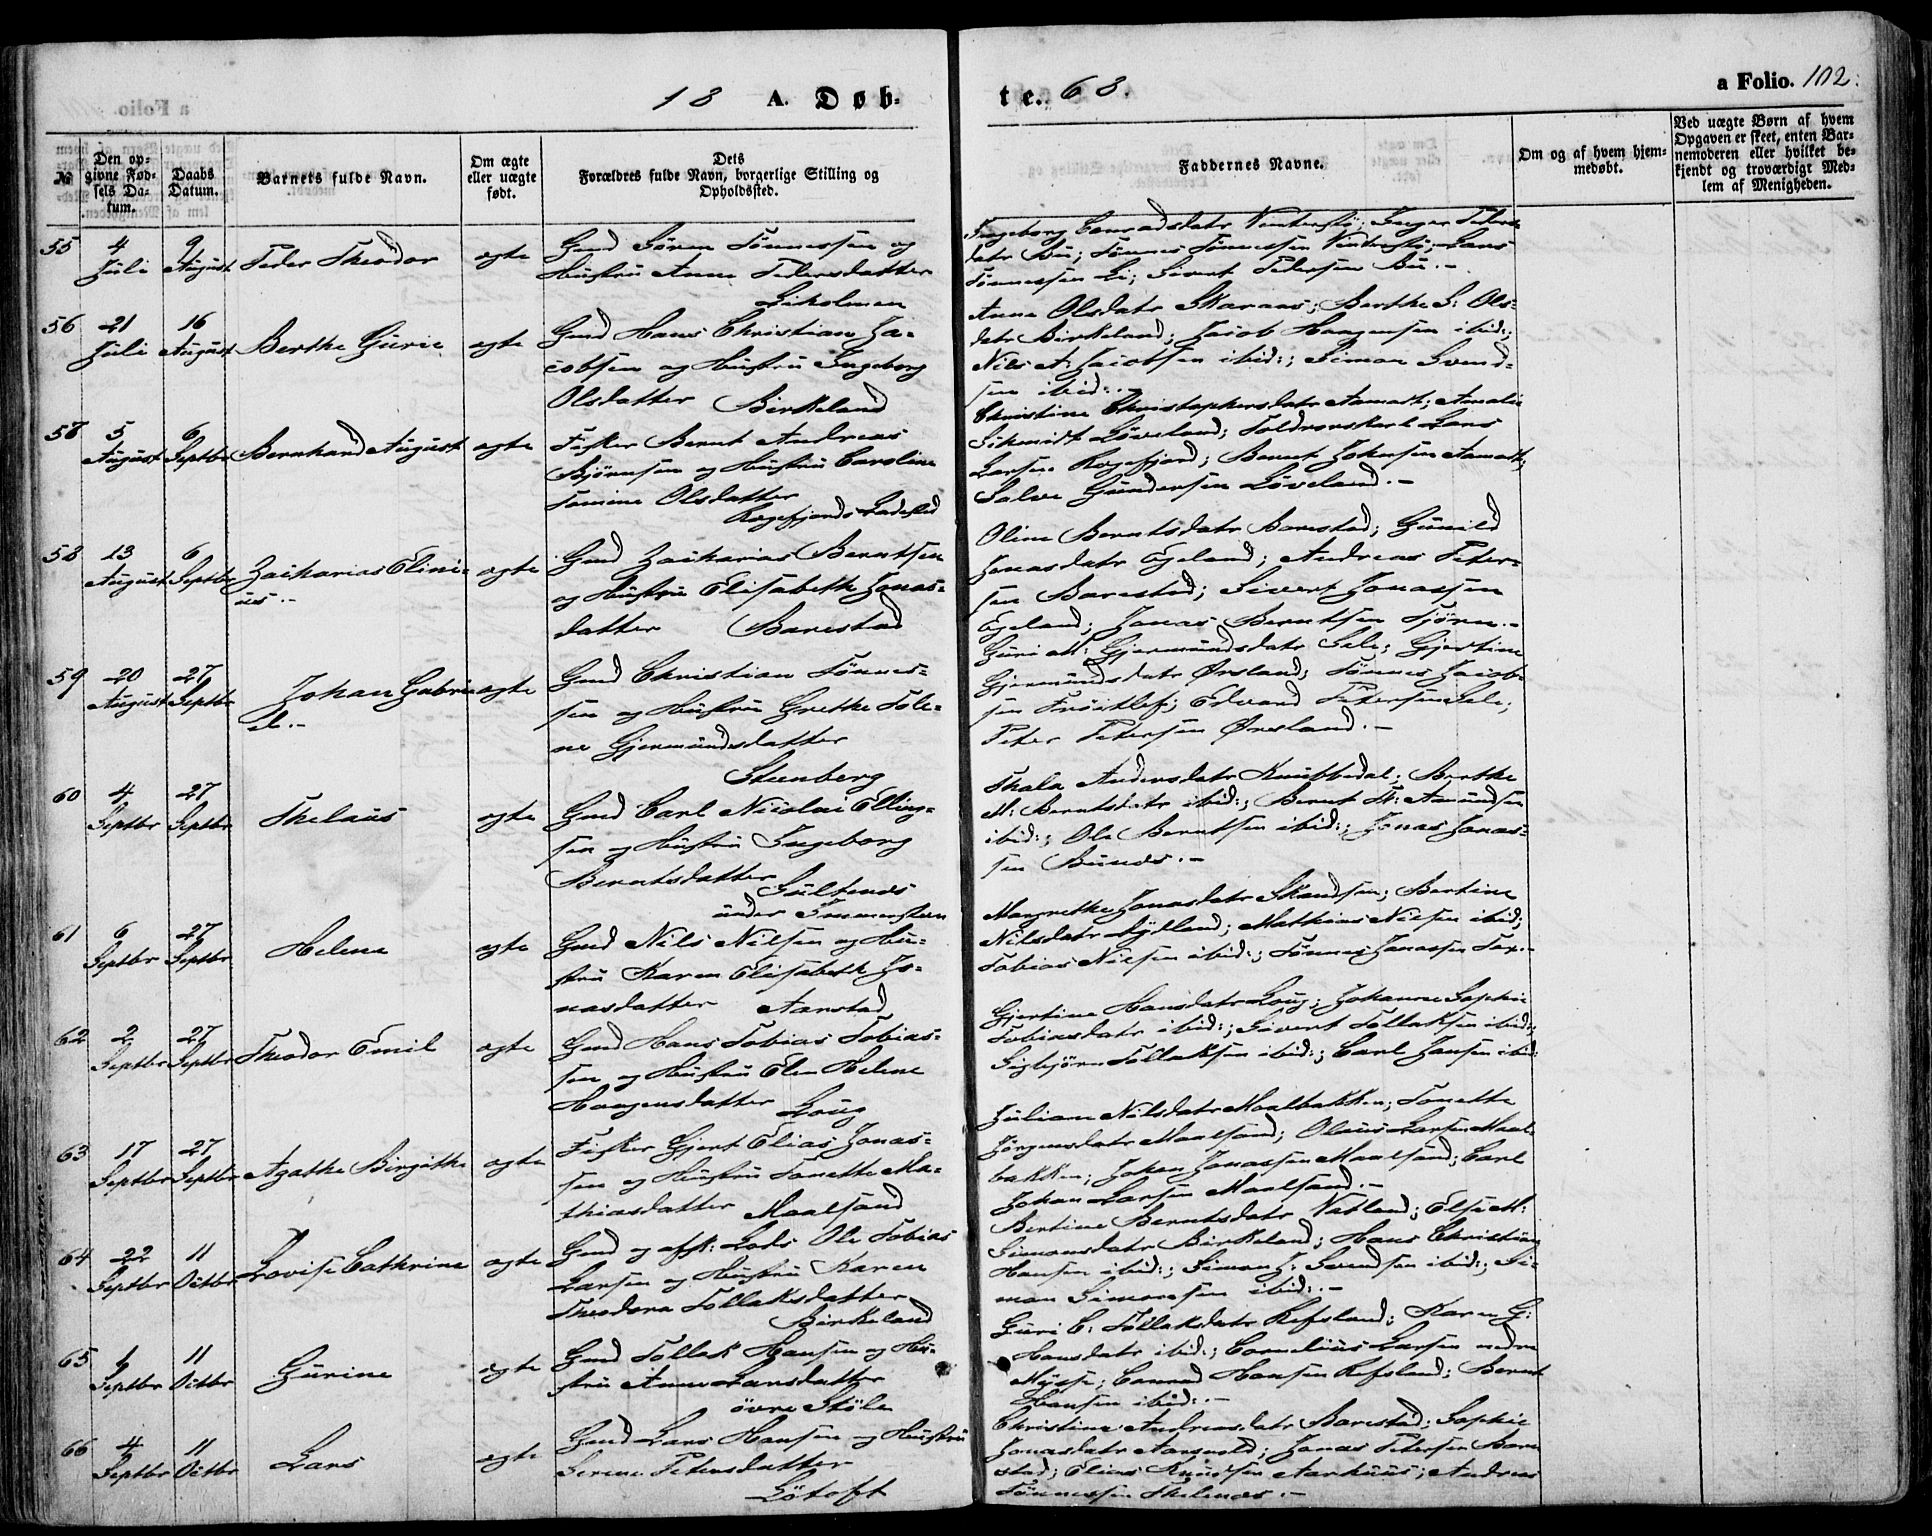 18 A. Døb-
te. 68.
a Folio. 102.
№
Den op-
givne Fød-
sels Da-
tum.
Daabs
Datum.
Barnets fulde Navn.
Om ægte
eller uægte
født.
Dets
Forældres fulde Navn, borgerlige Stilling og
Opholdssted.
Faddernes Navne.
Om og af hvem hjem-
medøbt.
Ved uægte Børn af hvem
Opgaven er skeet, enten Bar-
nemoderen eller hvilket be-
kjendt og troværdigt Med-
lem af Menigheden.
55
4 Juli
9 August
Peder Theodor
ægte
Gmd Søren Tønnessen og
Hustru Anne Pedersdatter
Ingeborg Conradsdatr
datr Bu; Tønnes Tønnessen
Tønnessen Li; Sivert Pedersen Bu.-
56
21 Juli
16 August
Berthe Gurie
ægte
Gmd Hans Christian Ja-
cobsen og Hustru Ingeborg
Olsdatter Birkeland
Anne Olsdatr Skaraas; Berthe S: Ols-
datr Birkeland; Jacob Haagensen ibid:;
Nils A: Jacobsen ibid:; Simon Svend-
sen ibid:.-
57
5 August
6 Septbr
Bernhard August
ægte
Fisker Bernt Andreas
Bjørnsen og Hustru Caroline
Tomine Olsdatter
Rægefjords Ladested
Christine Christophersdatr Aamodt; Amalie
Schmidt Løveland; Toldroerskarl Lars
Larsen Rægefjord; Bernt Johnsen Aamodt;
Salve Gundersen Løveland.-
58
13 August
6 Septbr
Zacharias Elini-
us.-
ægte
Gmd Zacharias Berntsen
og Hustru Elisabeth Jonas-
datter Barestad
Oline Berntsdatr Barestad; Gunild
Jonasdatr Egeland; Andreas Peter-
sen Barestad; Sivert Jonassen
Egeland; Jonas Berntsen Tjørn.-
59
20 August
27 Septbr
Johan Gabrie
l.-
ægte
Gmd Christian Tønnes-
sen og Hustru Grethe Tole-
ne Gjermundsdatter
Steenberg
Guri M: Gjermundsdatr Sele; Gjertine
Gjermundsdatr Ørsland; Tønnes Jacob-
sen Frøitlef; Edvard Petersen Sele;
Peter Petersen Ørsland.-
60
4 Septbr
27 Septbr
Thelaus
ægte
Gmd Carl Nicolai Elling-
sen og Hustru Ingeborg
Berntsdatter
under
Thala Andersdatr Knubbedal; Berthe
M: Berntsdatr ibid:; Bernt Aamundsen
ibid:; Ole Berntsen ibid:; Jonas Jonas-
sen
61
6 Septbr
27 Septbr
Helene
ægte
Gmd Nils Nilsen og Hu-
stru Karen Elisabeth Jo-
nasdatter Aarstad
Margrethe Jonasdatr Skandsen; Bertine
Nilsdatr Lytland; Mathias Nilsen ibid;
Tobias Nilsen ibid:; Tønnes Jonassen
62
2 Septbr
27 Septbr
Theodor Emil
ægte
Gmd Hans Tobias Tobias-
sen og Hustru Elen Helene
Haagensdatter Loug
Gjertine Hansdatr Loug; Johanne Sophie
Tobiasdatr ibid:; Sivert Tollaksen ibid:;
Sigbjørn Tollaksen ibid:; Carl Jansen ibid:
63
17 Septbr
27 Septbr
Agathe Birgithe
ægte
Fisker Gjert Elias Jonas-
sen og Hustru Tonette Ma-
thiasdatter Maalsund
Juliane Nilsdatr Maalbakken; Tonette
Jørgensdatr Maalsund; Olaus Larsen Maal-
bakken; Johan Jonassen Maalsund; Carl
Johan Larsen Maalsund.-
64
22 Septbr
11 Octbr
Lovise Cathrine
ægte
Gmd og afsk: Lods Ole Tobias
Larsen og Hustru Karen
Theodora Tollaksdatter
Birkeland
Bertine Berntsdatr Vatland; Else M:
Simonsdatr Birkeland; Hans Christian
Hansen ibid:; Simon J: Svendsen ibid:; Si-
mon Simonsen ibid:.-
65
1 Septbr
11 Octbr
Gurine
ægte
Gmd Tollak Hansen og Hu-
stru Anne Larsdatter
øvre Støle
Guri C: Tollaksdatr Refsland; Karen G:
Hansdatr ibid:; Cornelius Larsen nedre
Mysse; Conrad Hansen Refsland; Bernt
Hansen ibid:.-
66
4 Septbr
11 Octbr
Lars
ægte
Gmd Lars Hansen og Hustru
Serine Petersdatter
Løtoft
Christine Andreasdatr Barestad; Sophie
Jonasdatr; Jonas Petersen Bare
stad; Elias Knudsen Aarhuus; Andreas
Tønnessen